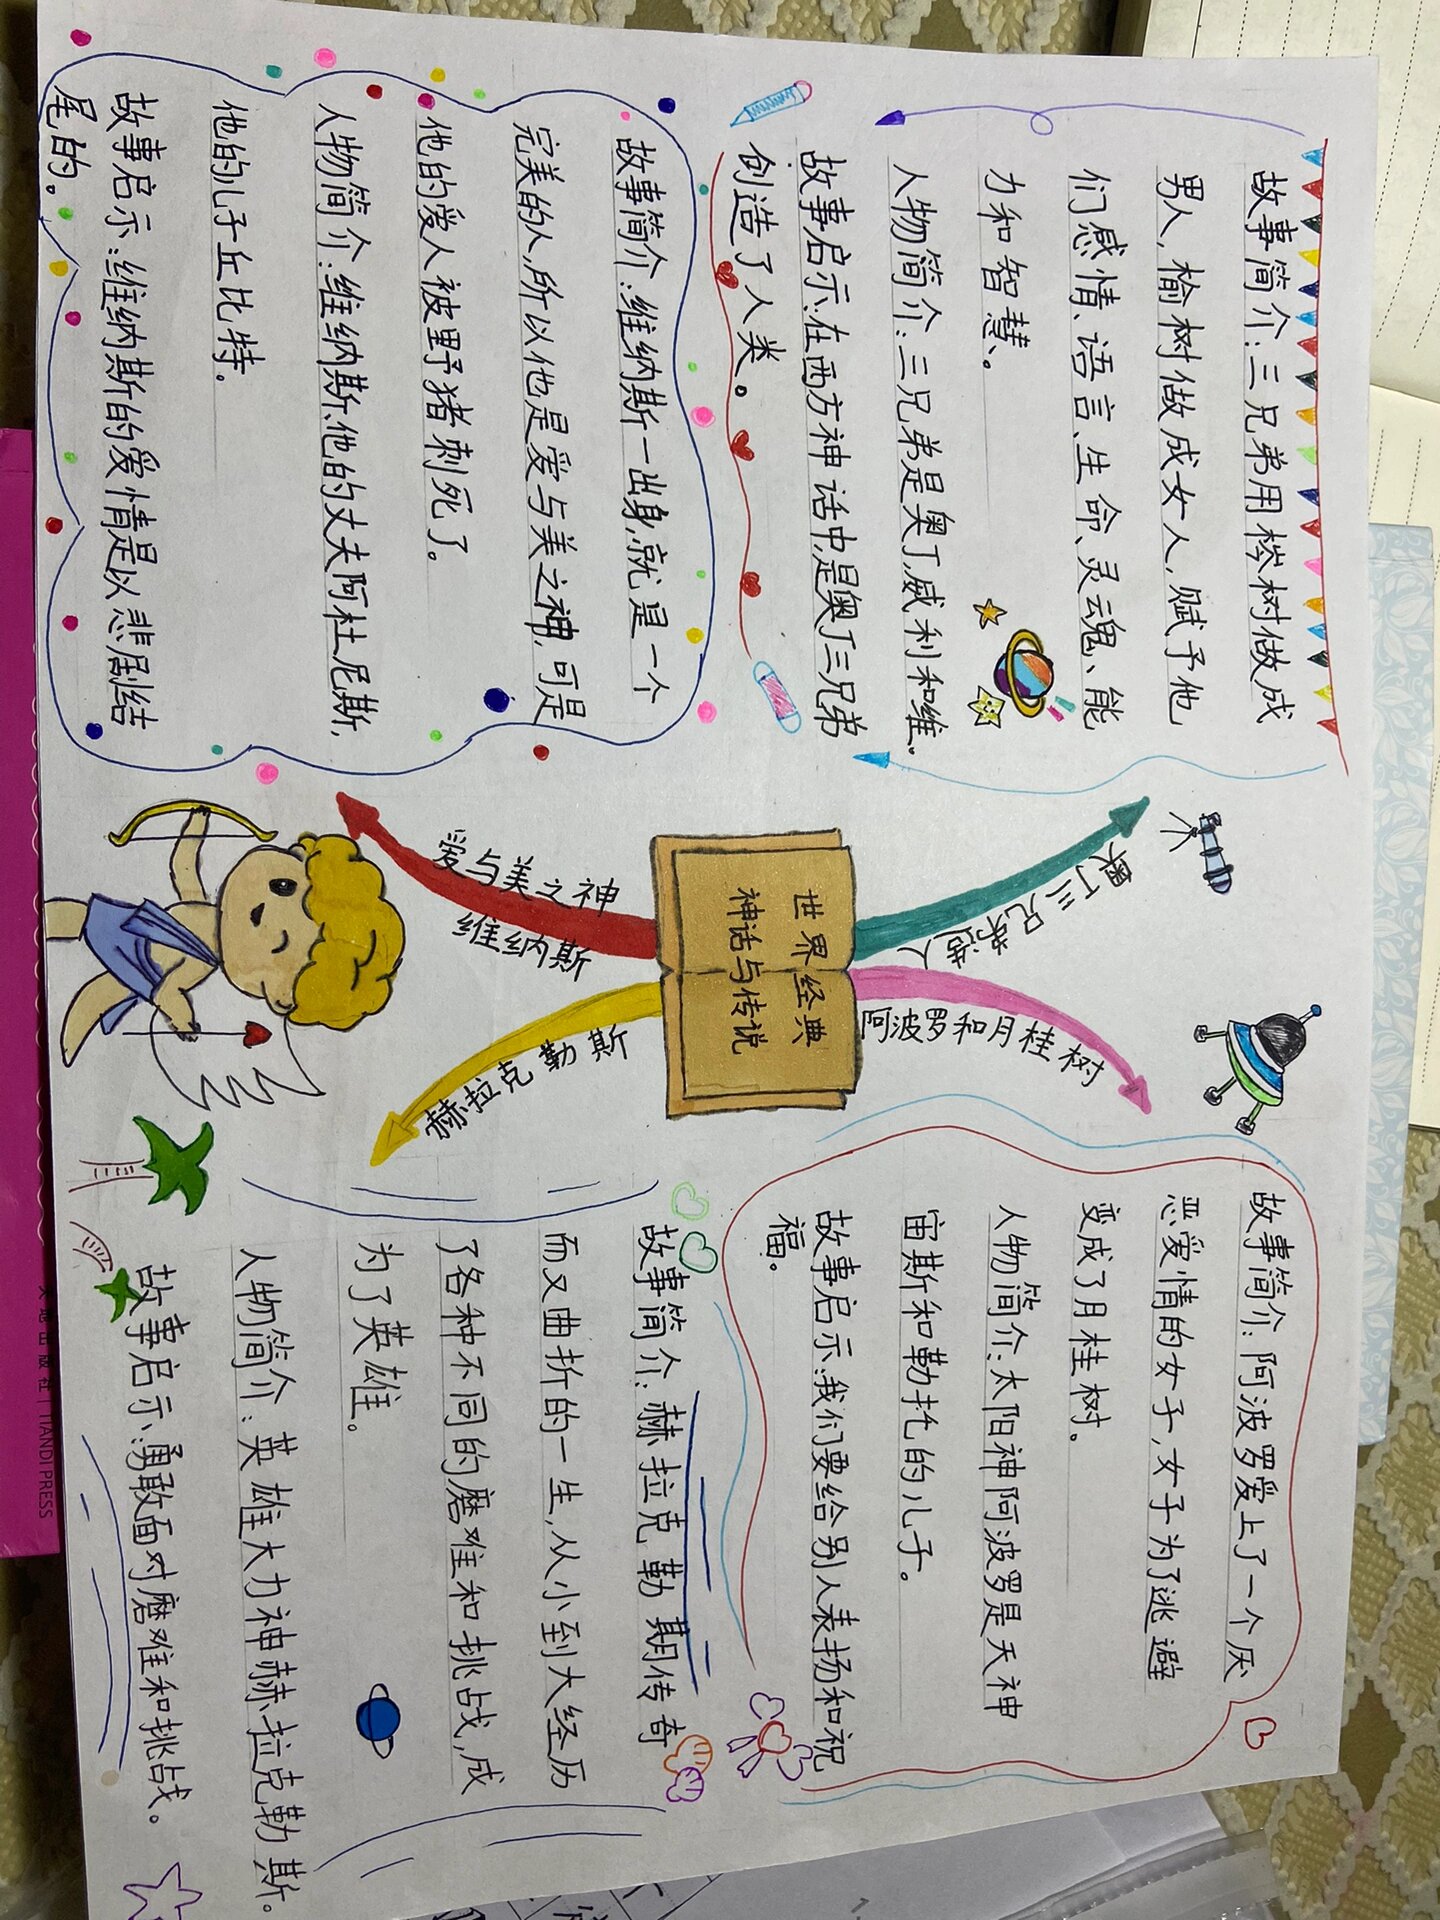 世界经典
神话与传说
奥丁三兄弟造人
故事简介:三兄弟用梣树做成
男人,榆树做成女人,赋予他
们感情、语言、生命、灵魂、能
力和智慧。
人物简介:三兄弟是奥丁,威利和维。
故事启示:在西方神话中,是奥丁三兄弟
创造了人类。
阿波罗和月桂树
故事简介:阿波罗爱上了一个厌
恶爱情的女子,女子为了逃避
变成了月桂树。
人物简介:太阳神阿波罗是天神
宙斯和勒托的儿子。
故事启示:我们要给别人表扬和祝
福。
爱与美之神
维纳斯
故事简介:维纳斯一出身,就是一个
完美的人,所以他是爱与美之神,可是
他的爱人被野猪刺死了。
人物简介:维纳斯、他的丈夫阿杜尼斯,
他的儿子丘比特。
故事启示:维纳斯的爱情是以悲剧结
尾的。
赫拉克勒斯
故事简介:赫拉克勒斯传奇
而又曲折的一生,从小到大经历
了各种不同的磨难和挑战,成
为了英雄。
人物简介:英雄大力神赫拉克勒斯。
故事启示:勇敢面对磨难和挑战。
天地出版社 | TIANDI PRESS